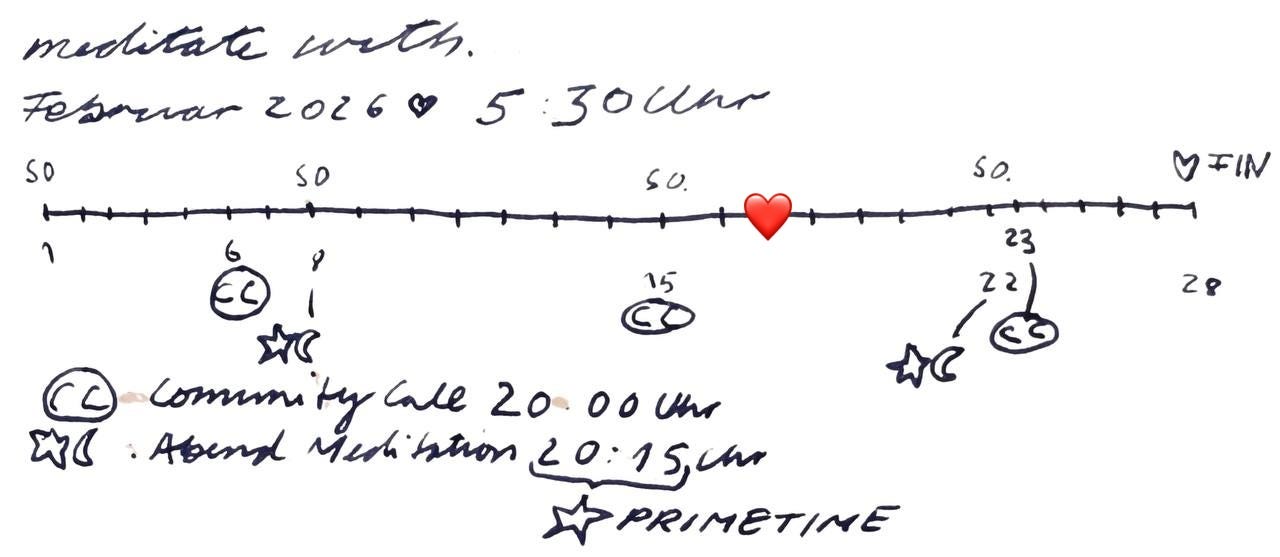 meditate with.
Februar 2026 ♥ 5:30 Uhr
SO SO SO. SO. ♡ FIN
1 6 8 15 22 23 28
CC CC CC
CC - Comunity Call 20:00 Uhr
☆☾ : Abend Meditation 20:15 Uhr
☆ PRIMETIME